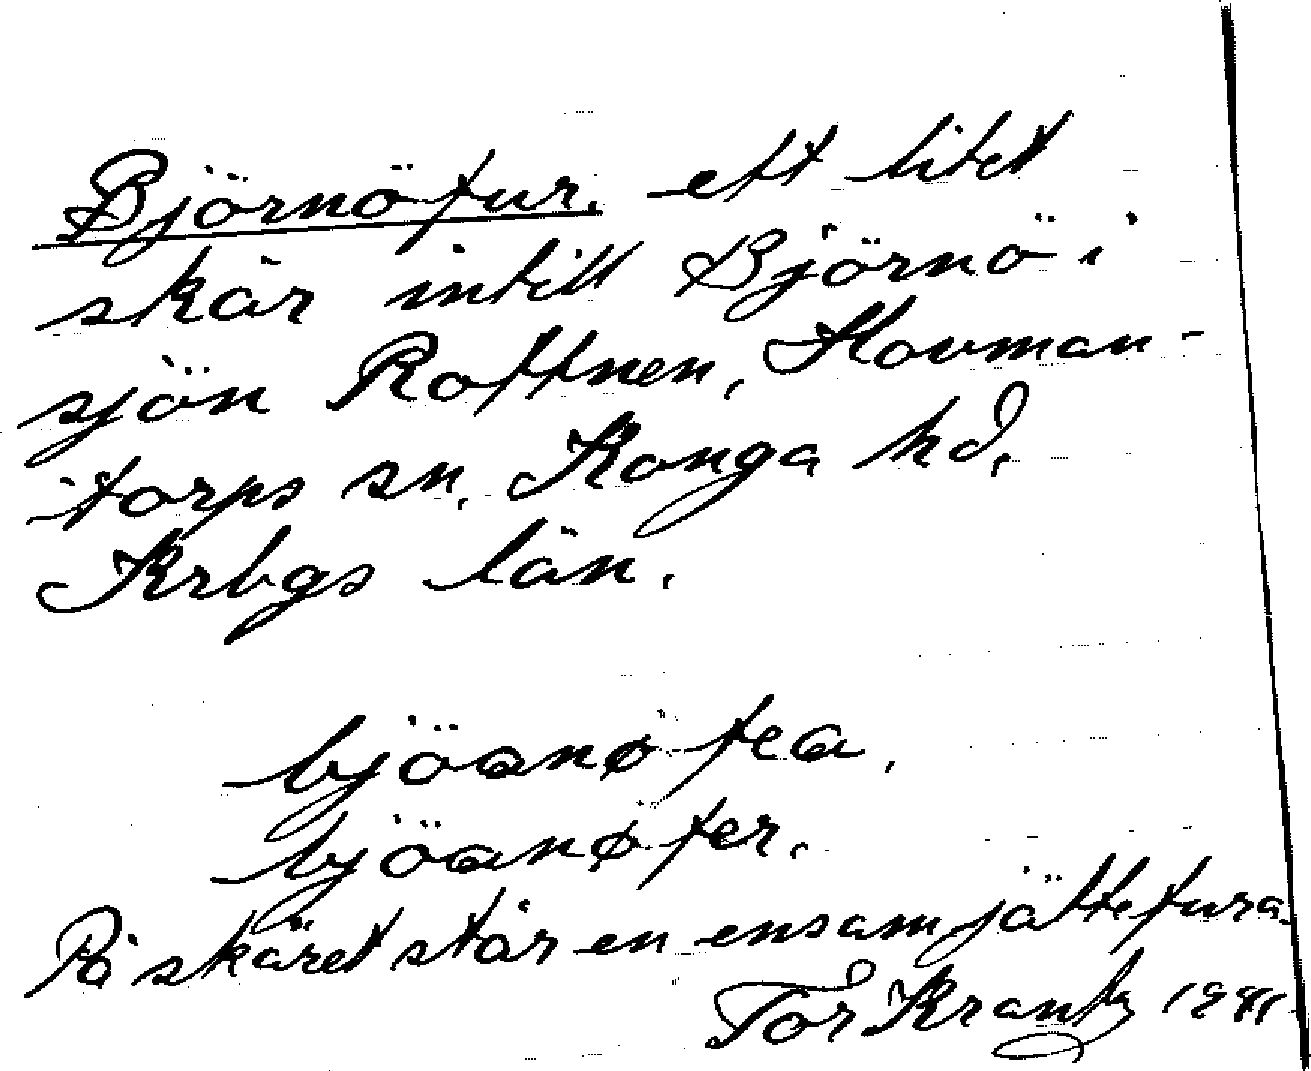 Björnöfur. ett litet
skär intill Björnö i
sjön Rottnen, Hovman-
torps sn, Konga hd,
Krbgs län.
bjöanøfea,
bjöanøfer.
På skäret står en ensam jättefura.
Tor Krantz